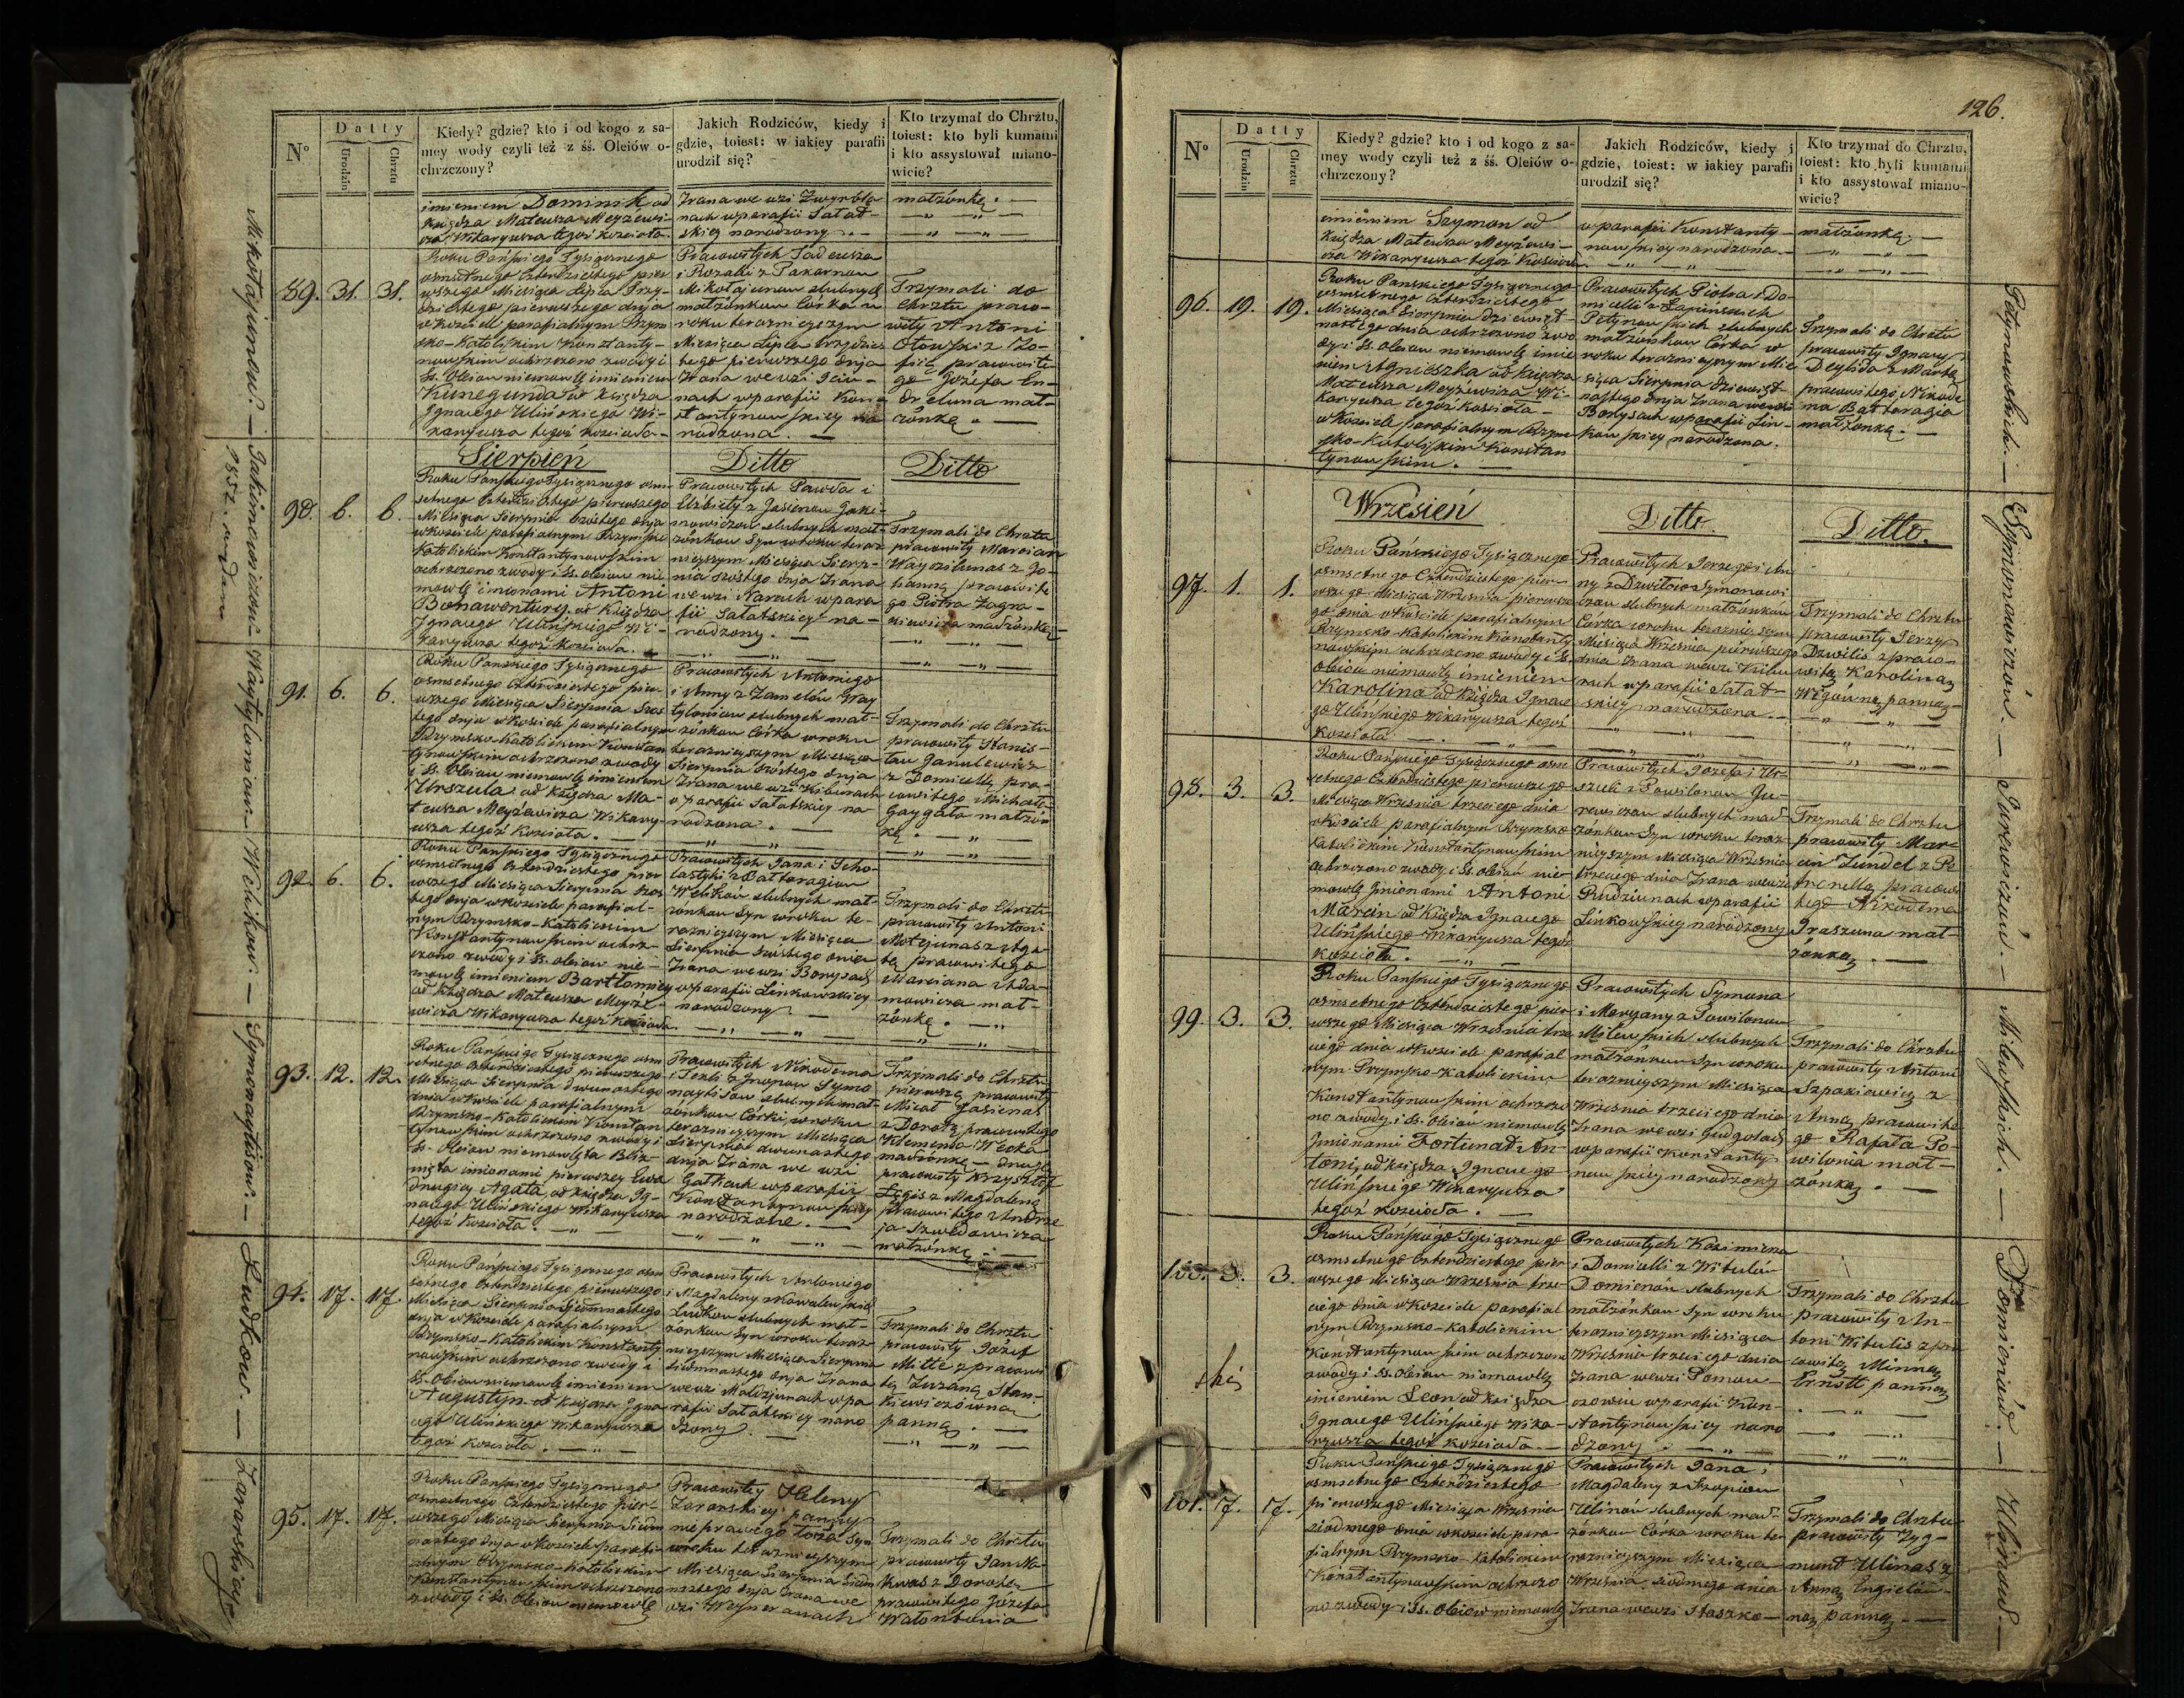 N°
Datty
Urodzin
Chrztu
Kiedy? gdzie? kto i od kogo z sa-
mey wody czyli też z śś. Oleiów o-
chrzczony?
Jakich Rodziców, kiedy i
gdzie, toiest: w iakiey parafii
urodził się?
Kto trzymał do Chrztu,
toiest: kto byli kumami
i kto assystował miano-
wicie?
imieniem Dominik od
Księdza Mateusza Meyżewi-
cza Wikaryusza tegoż kościoła.
zrana we wsi
nach w parafii Sałat-
skiey narodzony.
małżonką.
89. 31. 31.
Roku Pańskiego Tysiącznego
osmsetnego Czterdziestego pier
wszego Miesiąca Lipca Trzy-
dziestego pierwszego dnia
w kościele parafialnym Rzym
sko-Katolickim Konstanty-
nowskim ochrzczono z wody i
śś. Oleiow niemowlę imieniem
Kunegunda od księdza
Ignacego Ulińskiego Wi-
karyusza tegoż kościoła.
Pracowitych Tadeusza
i Rozalii z
Mikołaiunow slubnych
małżonkow Córka w
roku teraznieyszym
Miesiąca Lipca trzydzies
tego pierwszego dnia
zrana we wsi
nach w parafii Kon-
stantynowskiey na
rodzona.
Trzymali do
Chrztu praco-
wity Antoni
z Zo-
fią pracowite-
go Józefa En-
dreluna mał-
żonką.
Sierpień
Ditto
Ditto
90. 6. 6.
Roku Pańskiego Tysiącznego osm
setnego Czterdziestego pierwszego
Miesiąca Sierpnia szóstego dnia
w kościele parafialnym Rzymsko
Katolickim Konstantynowskim
ochrzczono z wody i śś. oleiow nie
mowlę imionami Antoni
Bonawentury od Księdza
Ignacego Ulińskiego Wi-
karyusza tegoż kościoła.
Pracowitych Pawła i
Elżbiety z Jasienow Jaki-
mowiczow slubnych mał-
żonkow Syn w roku teraz
nieyszym Miesiąca Sierp-
nia szóstego dnia zrana
we wsi Narach w para
fii Sałatskiey na-
rodzony.
Trzymali do Chrztu
pracowity Marcian
z Jo-
hanną pracowite
go Piotra Zagra-
niewicza małżonką
91. 6. 6.
Roku Pańskiego Tysiącznego
osmsetnego Czterdziestego pier
wszego Miesiąca Sierpnia szos
tego dnia w kościele parafialnym
Rzymsko-Katolickim Konstan
tynowskim ochrzczono z wody
i śś. Oleiow niemowlę imieniem
Urszula od księdza Ma-
teusza Meyżewicza Wikary-
usza tegoż kościoła.
Pracowitych Antoniego
i Anny z Zamelow Way
tylaniow slubnych mał-
żonkow Córka w roku
teraznieyszym Miesiąca
Sierpnia szóstego dnia
zrana we wsi Kiburach
w parafii Sałatskiey na
rodzona.
Trzymali do Chrztu
pracowity Stanis-
ław Janulewicz
z Domicellą pra-
cowitego Michała
Gaygała małżon
ką
92. 6. 6.
Roku Pańskiego Tysiącznego
osmsetnego Czterdziestego pier
wszego Miesiąca Sierpnia szos
tego dnia w kościele parafial-
nym Rzymsko-Katolickim
Konstantynowskim ochrz-
czono z wody i śś. oleiow nie-
mowlę imieniem Bartłomiey
od Księdza Mateusza Meyże-
wicza Wikaryusza tegoż kościoła.
Pracowitych Jana i Scho-
lastyki z Baltaragiow
Welikow slubnych mał-
żonkow Syn w roku te-
raznieyszym Miesiąca
Sierpnia szóstego dnia
zrana we wsi Bonysach
w parafii Linkowskiey
narodzony
Trzymali do Chrztu
pracowity Antoni
Motejunas z Aga-
tą pracowitego
Marciana Ada-
mowicza mał-
żonką.
93. 12. 12.
Roku Pańskiego Tysiącznego osm
setnego Czterdziestego pierwszego
Miesiąca Sierpnia dwunastego
dnia w kościele parafialnym
Rzymsko-Katolickim Konstan
tynowskim ochrzczono z wody i
śś. Oleiow niemowlęta Bliz-
nięta imionami pierwszey Ewa
drugiey Agata, od księdza Ig-
nacego Ulińskiego Wikaryusza
tegoż kościoła.
Pracowitych Nikodema
i Tekli z Symo
naytisow slubnych mał-
żonkow Córki w roku
teraznieyszym Miesiąca
Sierpnia dwunastego
dnia zrana we wsi
Gatkach w parafii
Konstantynowskiey
narodzone.
Trzymali do Chrztu
pierwszą pracowity
Micał Jasienas
z Dorotą pracowitego
Klemensa
małżonką – drugą
pracowity Krzysztof
z Magdaleną
pracowitego Andrze
ja Szwedowicza
małżonką
94. 17. 17.
Roku Pańskiego Tysiącznego osm
setnego Czterdziestego pierwszego
Miesiąca Sierpnia siedmnastego
dnia w kościele parafialnym
Rzymsko-Katolickim Konstanty
nowskim ochrzczono z wody i
śś. Oleiow niemowlę imieniem
Augustyn od księdza Igna
cego Ulińskiego Wikaryusza
tegoż kościoła.
Pracowitych Antoniego
i Magdaleny z Kowalewskich
Ludkow slubnych mał-
żonkow Syn w roku teraz-
nieyszym Miesiąca Sierpnia
siedmnastego dnia zrana
we wsi Maldziunach w pa
rafii Sałatskiey naro
dzony.
Trzymali do Chrztu
pracowity Jozef
Mitte z pracowi
tą Zuzaną Stan-
kiewiczówną
panną.
95. 17. 17.
Roku Pańskiego Tysiącznego
osmsetnego Czterdziestego pier-
wszego Miesiąca Sierpnia siedm
nastego dnia w kościele parafi-
alnym Rzymsko-Katolickim
Konstantynowskim ochrzczono
z wody i śś. Oleiow niemowlę
Pracowitey Heleny
Zaranskiey panny
nieprawego łoża Syn
w roku teraznieyszym
Miesiąca Sierpnia siedm
nastego dnia zrana we
wsi
Trzymali do Chrztu
pracowity Jan No-
kwas z Dorotą
pracowitego Józefa
Walantania
Mikołaiunow. – Jakimowiczow. – Waytylaniow. – Welikow. – Symonaytisow. – Ludkow. – Zaranskiego
126.
N°
Datty
Urodzin
Chrztu
Kiedy? gdzie? kto i od kogo z sa-
mey wody czyli też z śś. Oleiów o-
chrzczony?
Jakich Rodziców, kiedy i
gdzie, toiest: w iakiey parafii
urodził się?
Kto trzymał do Chrztu,
toiest: kto byli kumami
i kto assystował miano-
wicie?
imieniem Szymon od
Księdza Mateusza Meyżewi-
cza Wikaryusza tegoż Kościoła
w parafii Konstanty-
nowskiey narodzona.
małżonką.
96. 19. 19.
Roku Pańskiego Tysiącznego
osmsetnego Czterdziestego
Miesiąca Sierpnia dziewięt-
nastego dnia ochrzczono z wo
dy i śś. Oleiow niemowlę imie
niem Agnieszka od Księdza
Mateusza Meyżewicza Wi-
karyusza tegoż kościoła –
w kościele parafialnym Rzym
sko-Katolickim Konstan
tynowskim.
Pracowitych Piotra i Do-
micelli z Łapinskich
Petynowskich slubnych
małżonkow Córka w
roku teraznieyszym Mie
siąca Sierpnia dziewięt-
nastego dnia zrana we wsi
Bonysach w parafii Lin-
kowskiey narodzona.
Trzymali do Chrztu
pracowity Ignacy
z Martą
pracowitego Nikode
ma Baltaragia
małżonką.
Wrzésień
Ditto.
Ditto.
97. 1. 1.
Roku Pańskiego Tysiącznego
osmsetnego Czterdziestego pier-
wszego Miesiąca Września pierwsze
go dnia w kościele parafialnym
Rzymsko-Katolickim Konstanty
nowskim ochrzczono z wody i śś.
Oleiow niemowlę imieniem
Karolina od Księdza Ignace
go Ulińskiego Wikaryusza tegoż
kościoła.
Pracowitych Jerzego i An
ny z Dzwilow Symonowi
czow slubnych małżonkow
Córka w roku teraznieyszym
Miesiąca Września pierwszego
dnia zrana we wsi Kibu
rach w parafii Sałat-
skiey narodzona.
Trzymali do Chrztu
pracowity Jerzy
Dzwilis z praco-
witą Karoliną
panną
98. 3. 3.
Roku Pańskiego Tysiącznego osm
setnego Czterdziestego pierwszego
Miesiąca Września trzeciego dnia
w kościele parafialnym Rzymsko
Katolickim Konstantynowskim
ochrzczono z wody i śś. oleiow nie
mowlę imionami Antoni
Marcin od Księdza Ignacego
Ulińskiego Wikaryusza tegoż
kościoła.
Pracowitych Jozefa i Ur-
szuli z Sawilonow Ju-
rewiczow slubnych mał-
żonkow Syn w roku teraz
nieyszym Miesiąca Września
trzeciego dnia zrana we wsi
Rudziunach w parafii
Linkowskiey narodzony
Trzymali do Chrztu
pracowity Mar-
cin Zundel z Pe
tronellą pracowi
tego Nikodema
Iraszuna mał-
żonką.
99. 3. 3.
Roku Pańskiego Tysiącznego
osmsetnego Czterdziestego pier-
wszego Miesiąca Września trze
ciego dnia w kościele parafial
nym Rzymsko-Katolickim
Konstantynowskim ochrzczo
no z wody i śś. Oleiów niemowlę
imionami Fortunat An-
toni, od księdza Ignacego
Ulińskiego Wikaryusza
tegoż kościoła.
Pracowitych Symona
i Maryany z Sawilonow
Milewskich slubnych
małżonkow Syn w roku
teraznieyszym Miesiąca
Września trzeciego dnia
zrana we wsi Gudgolach
w parafii Konstanty-
nowskiey narodzony
Trzymali do Chrztu
pracowity Antoni
Szpakiewicz z
Anną pracowite
go Rafała Po-
wilonia mał-
żonką.
100. 3. 3.
Roku Pańskiego Tysiącznego
osmsetnego Czterdziestego pier
wszego Miesiąca Września trze-
ciego dnia w kościele parafial
nym Rzymsko-Katolickim
Konstantynowskim ochrzczono
z wody i śś. Oleiow niemowlę
imieniem Leon od księdza
Ignacego Ulińskiego Wika-
ryusza tegoż kościoła.
Pracowitych Kazimierza
i Domicelli z Witulów
Domienów slubnych
małżonkow Syn w roku
teraznieyszym Miesiąca
Września trzeciego dnia
zrana we wsi
w parafii Kon-
stantynowskiey naro
dzony.
Trzymali do Chrztu
pracowity An-
toni Witulis z pra
cowitą Minną
Ernstt panną
101. 7. 7.
Roku Pańskiego Tysiącznego
osmsetnego Czterdziestego
pierwszego Miesiąca Września
siodmego dnia w kościele para-
fialnym Rzymsko-Katolickim
Konstantynowskim ochrzczo
no z wody i śś. Oleiow niemowlę
Pracowitych Jana i
Magdaleny z
Ulinow slubnych mał-
żonkow Córka w roku te
raznieyszym Miesiąca
Września siodmego dnia
zrana we wsi Staszko-
Trzymali do Chrztu
pracowity Zyg-
munt Ulinas z
Anną Engielów-
ną panną.
Petynowskich. – Symonowiczów. – Jurewiczów. – Milewskich. – Domienów. – Ulinow. –